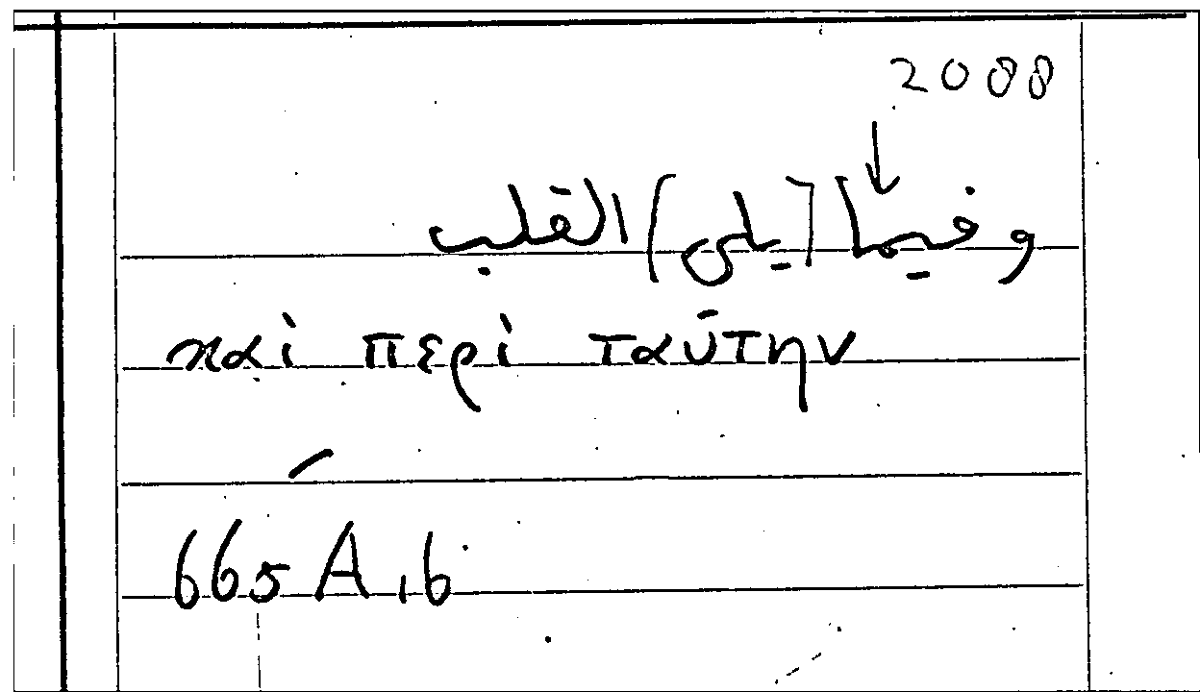 2088
↓
وفيما [يلى] القلب
καὶ περὶ ταύτην
665 A, 6